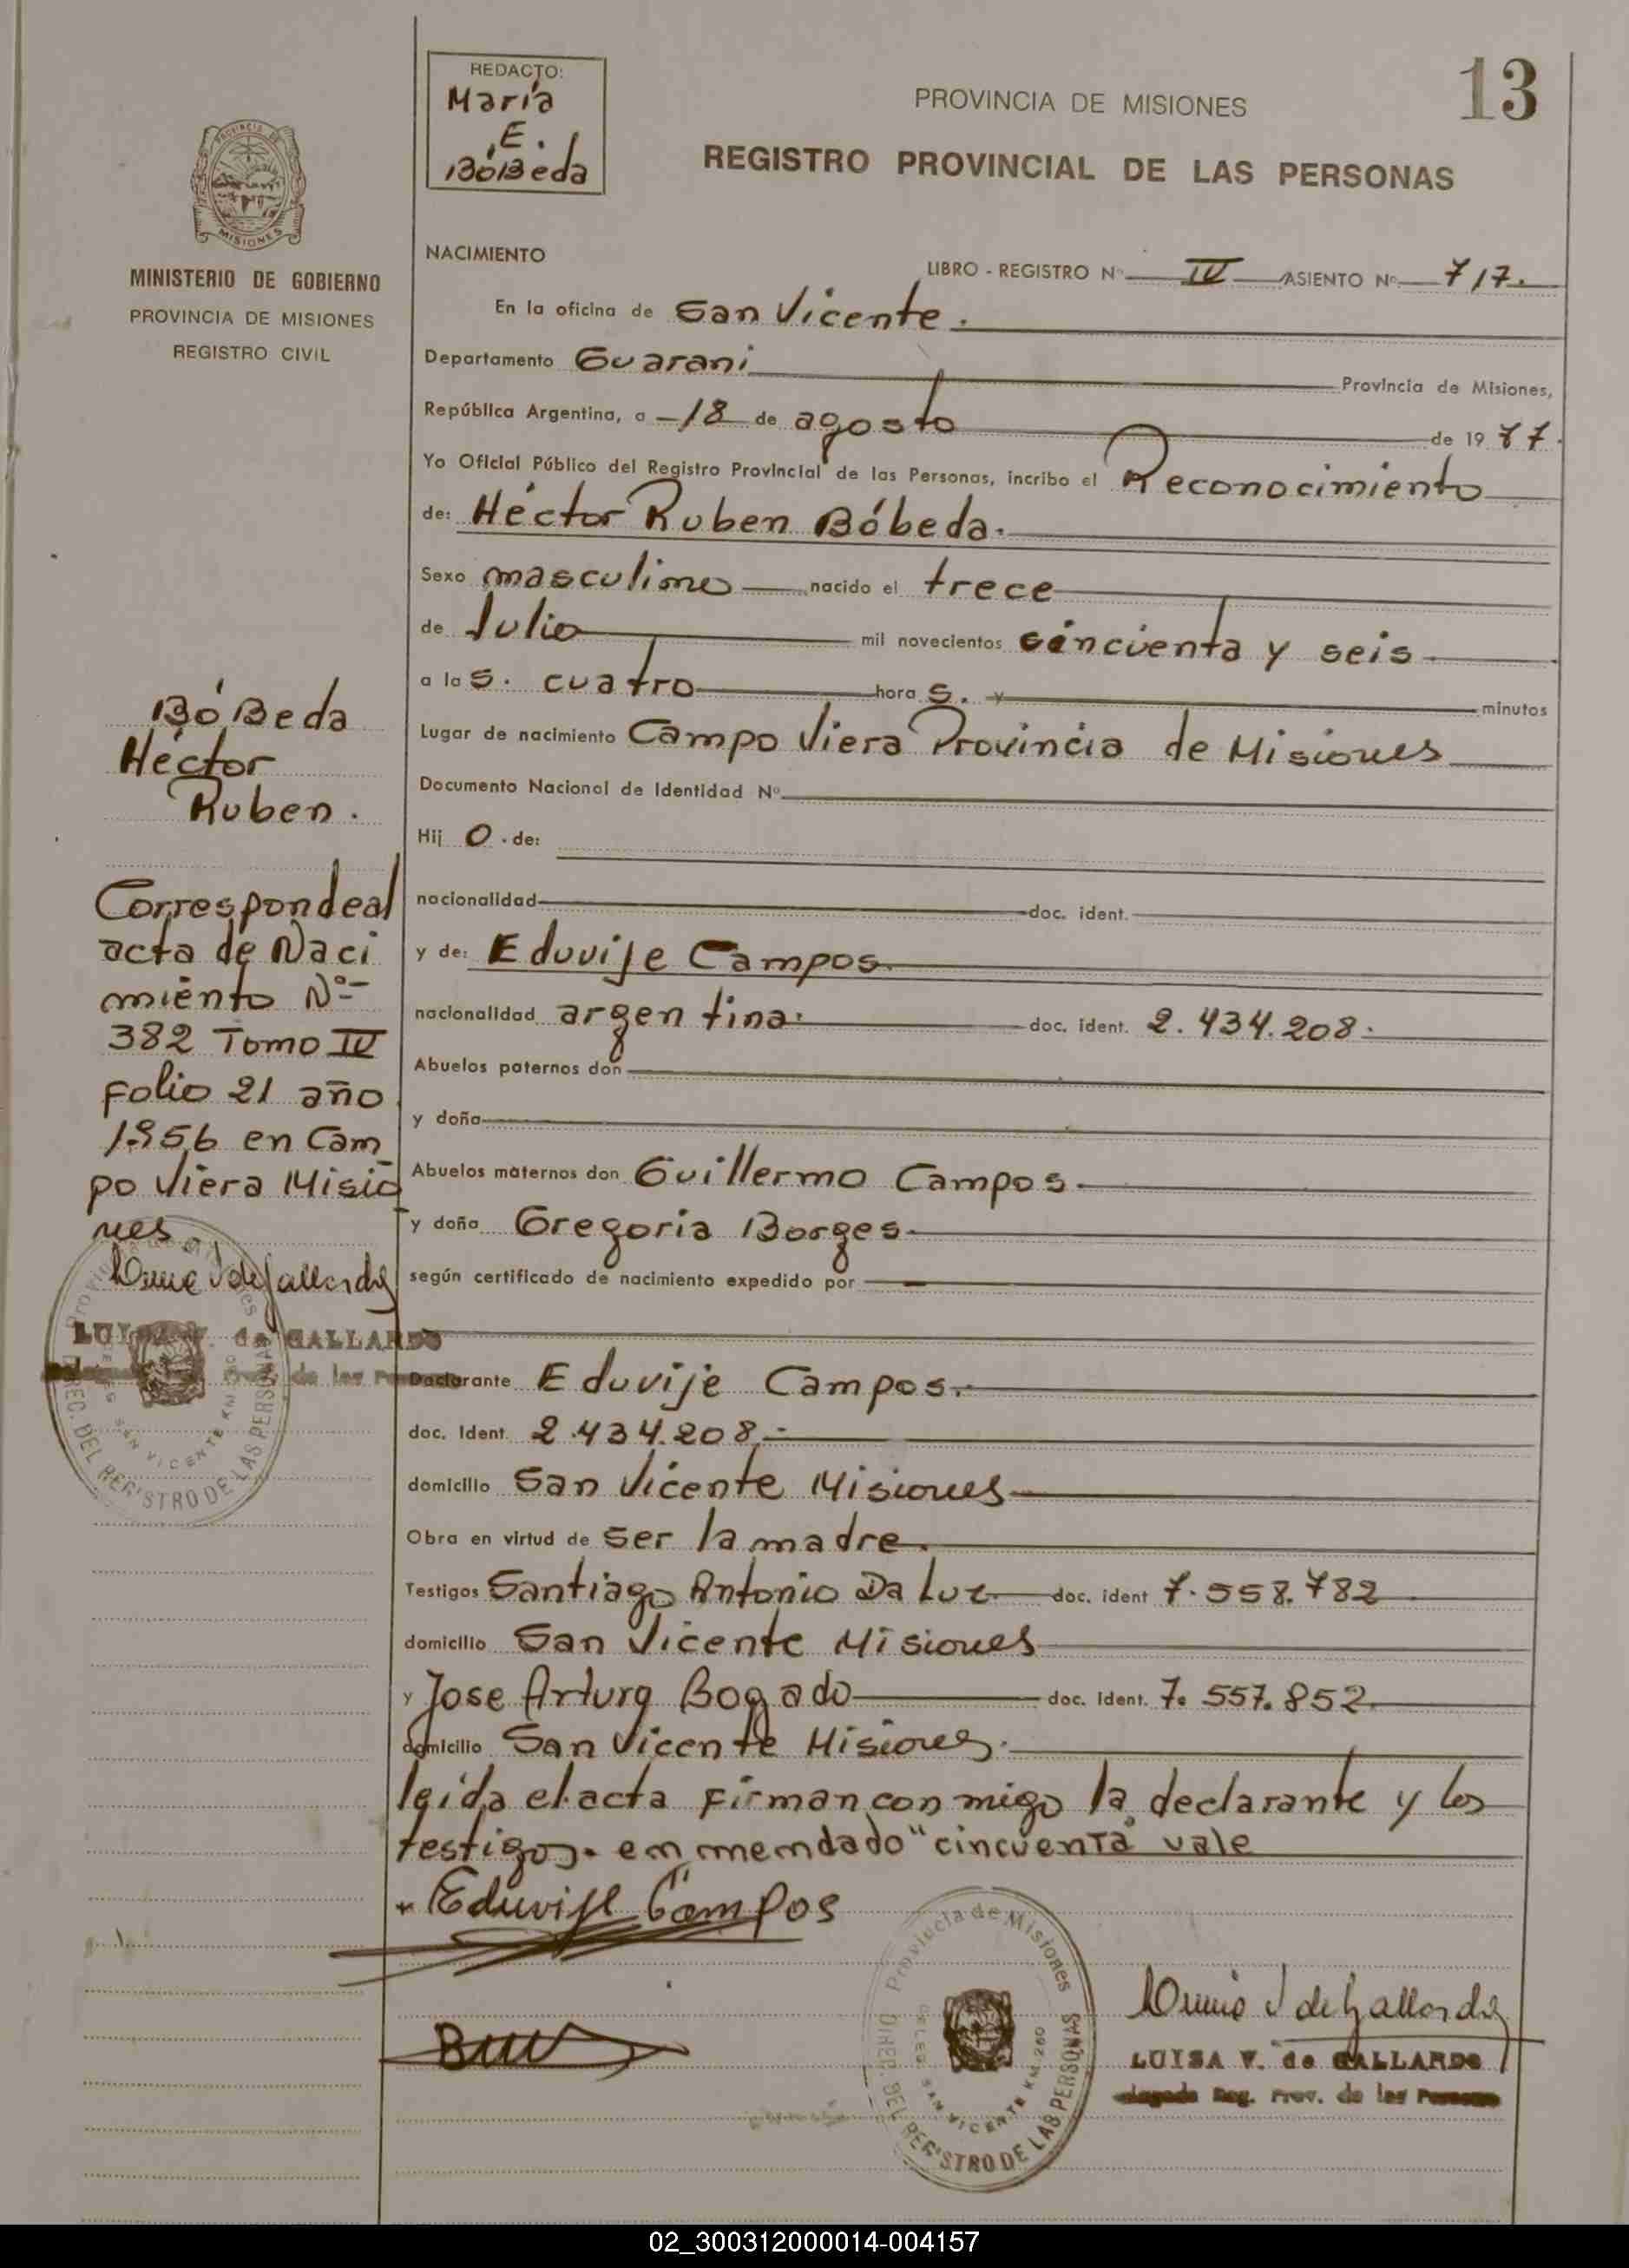 REDACTO:
María
E.
BóBeda
PROVINCIA DE MISIONES
13
REGISTRO PROVINCIAL DE LAS PERSONAS
MISIONES
MINISTERIO DE GOBIERNO
PROVINCIA DE MISIONES
REGISTRO CIVIL
NACIMIENTO
LIBRO - REGISTRO Nº IV ASIENTO Nº 717.
En la oficina de San Vicente.
Departamento Guarani Provincia de Misiones,
República Argentina, a -18 de agosto de 1977.
Yo Oficial Público del Registro Provincial de las Personas, incribo el Reconocimiento
de: Héctor Ruben Bóbeda.
Sexo masculino nacido el trece
de Julio mil novecientos cincuenta y seis
a las. cuatro horas. y minutos
Lugar de nacimiento Campo Viera Provincia de Misiones
Documento Nacional de Identidad Nº
Hijo. de:
nacionalidad doc. ident.
y de: Eduvije Campos
nacionalidad argentina. doc. ident. 2.434.208.
Abuelos paternos don
y doña
Abuelos maternos don Guillermo Campos
y doña Gregoria Borges
según certificado de nacimiento expedido por
Declarante Eduvije Campos.
doc. Ident. 2.434.208.-
domicilio San Vicente Misiones
Obra en virtud de Ser la madre.
Testigos Santiago Antonio Da Luz doc. ident 7.558.782
domicilio San Vicente Misiones
y Jose Arturo Bogado doc. Ident. 7.557.852.
domicilio San Vicente Misiones.
leída el acta firman conmigo la declarante y los
testigos. enmendado "cincuenta" vale
Eduvije Campos
BóBeda
Héctor
Ruben.
Corresponde al
acta de Naci
miento Nº-
382 Tomo IV
Folio 21 año
1.956 en Cam
po Viera Misio
nes
LUISA V. de GALLARDO
de las
DIREC. DEL REGISTRO DE LAS PERSONAS
SAN VICENTE KM
Provincia de Misiones
DIREC. DEL REGISTRO DE LAS PERSONAS
DELEG. SAN VICENTE KM. 260
LUISA V. de GALLARDO
Reg. Prov. de las Personas
02_300312000014-004157